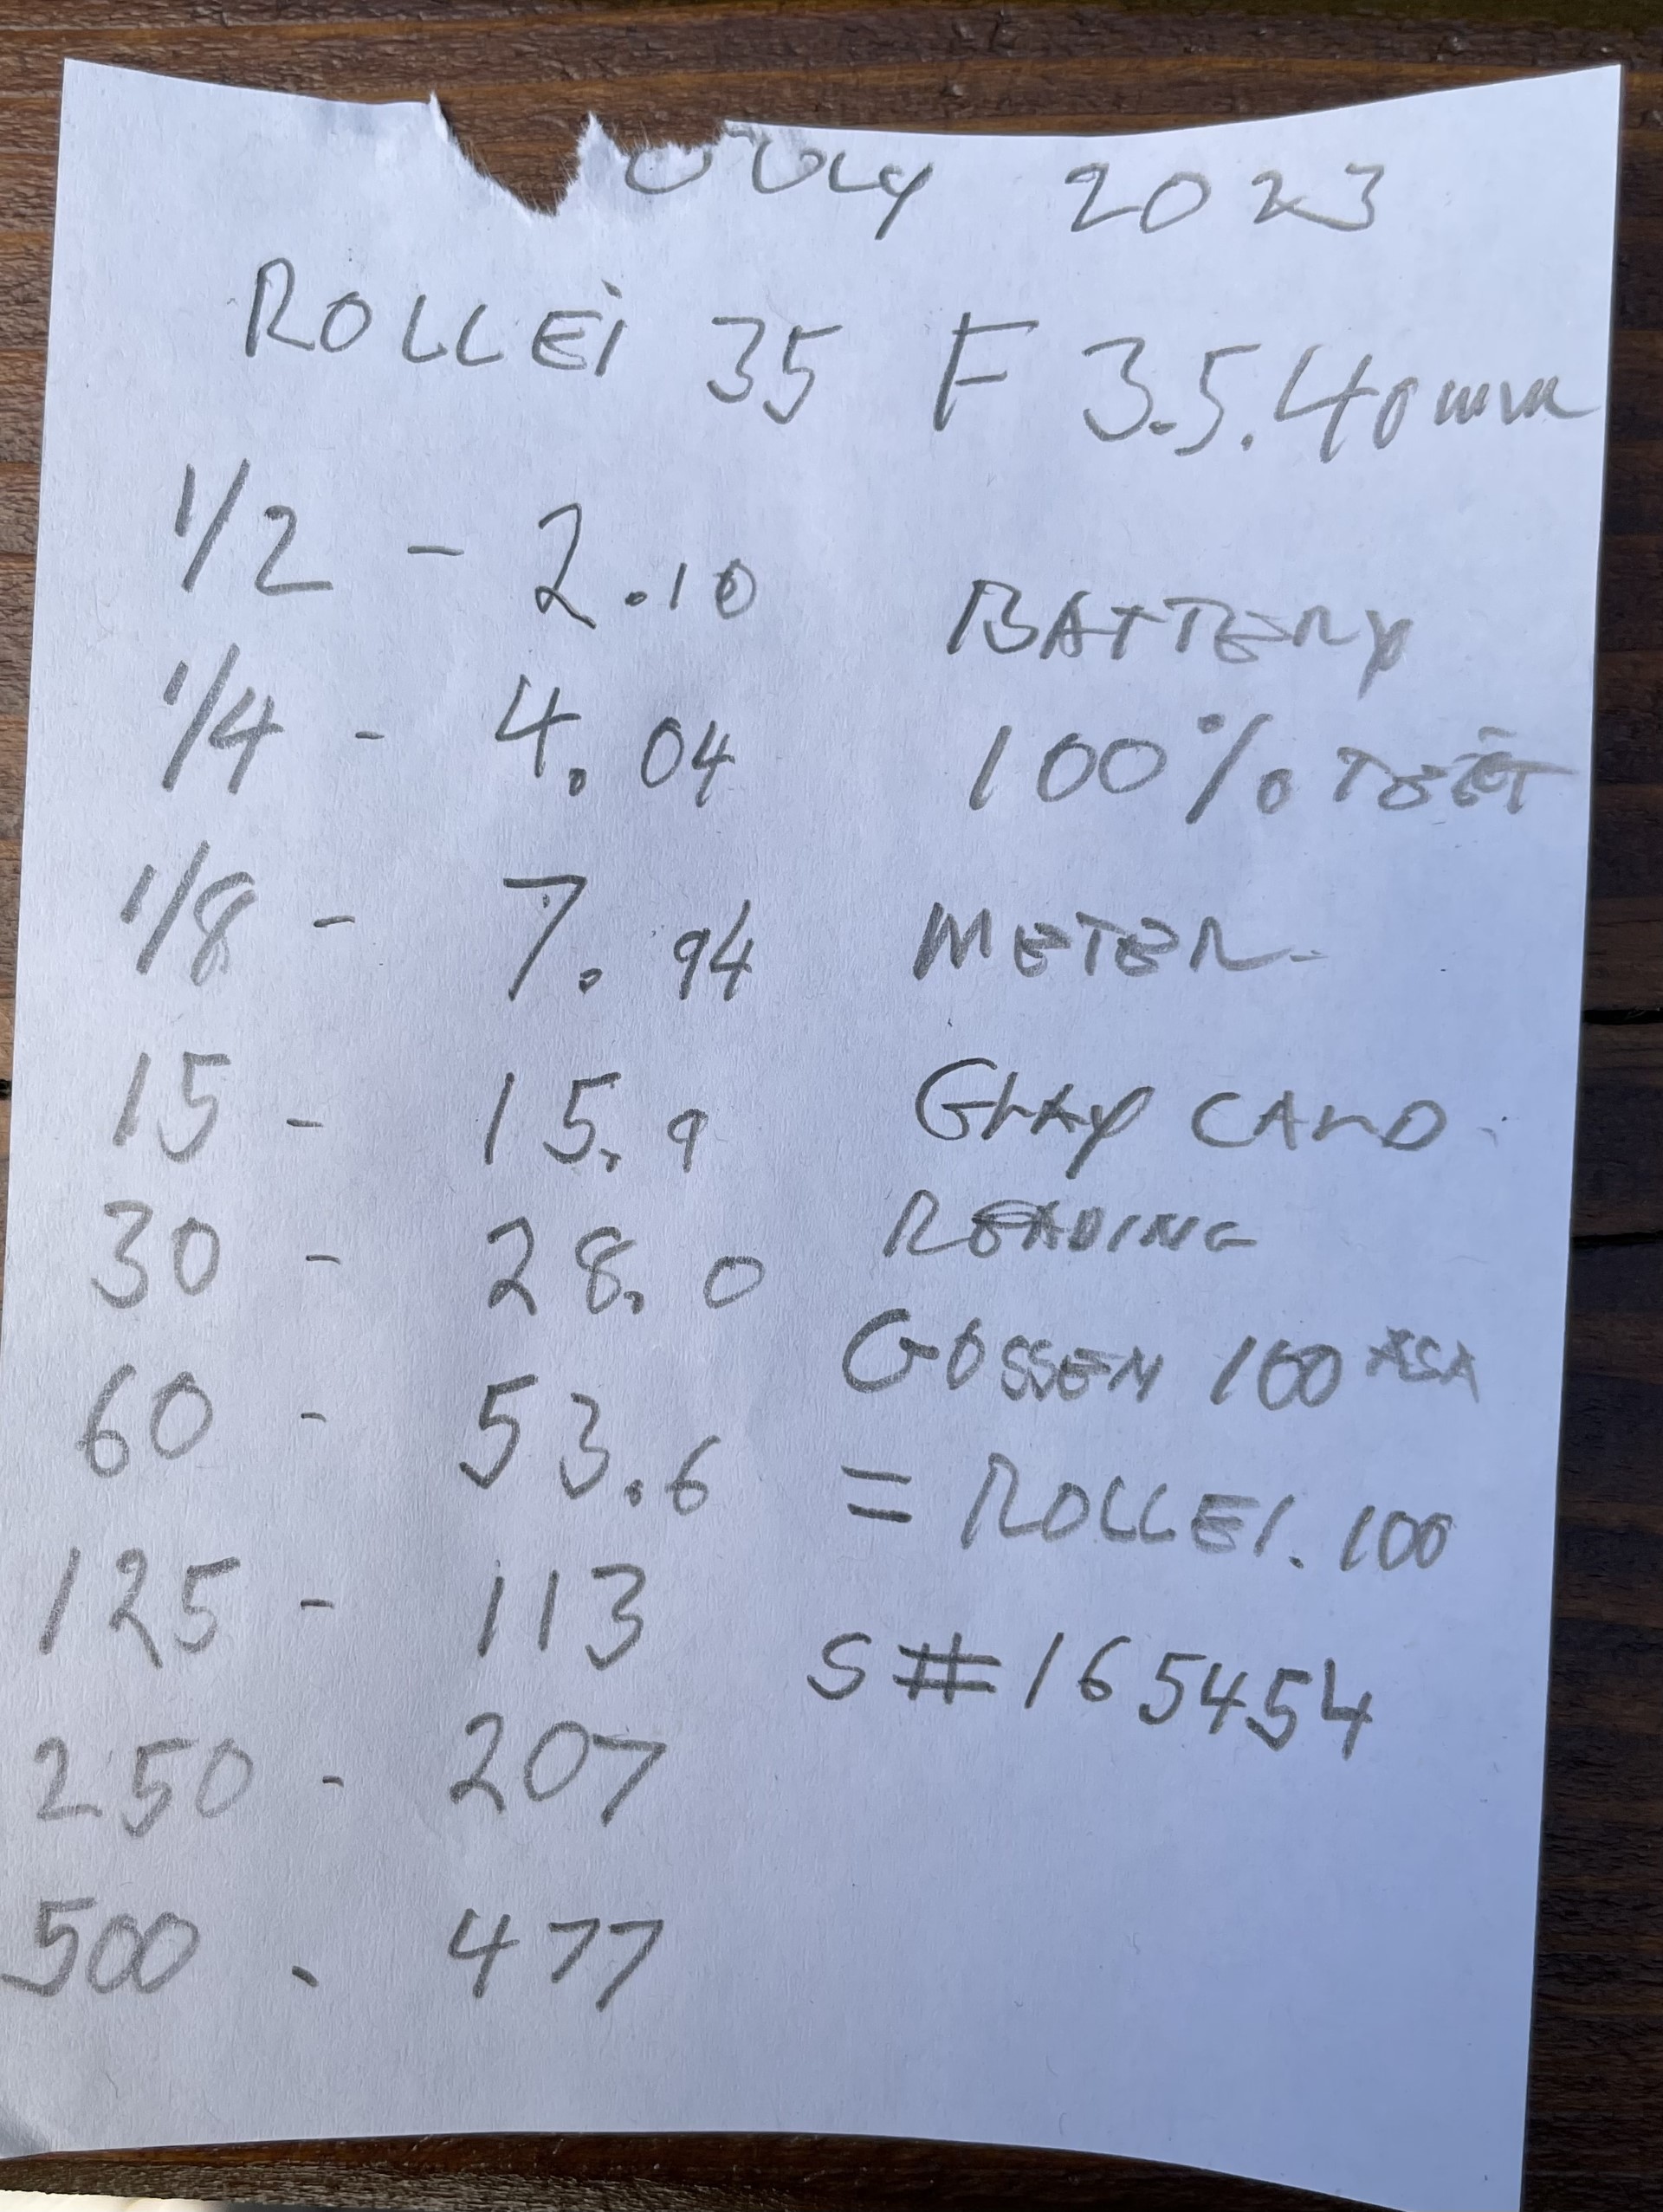 JULY 2023
ROLLEi 35 F 3.5.40mm
1/2 - 2.10
1/4 - 4.04
1/8 - 7.94
15 - 15.9
30 - 28.0
60 - 53.6
125 - 113
250 - 207
500 - 477
BATTERY
100% TEST
METER-
GRAY CARD.
READING
GOSSEN 100 ASA
= ROLLEI. 100
S#165454